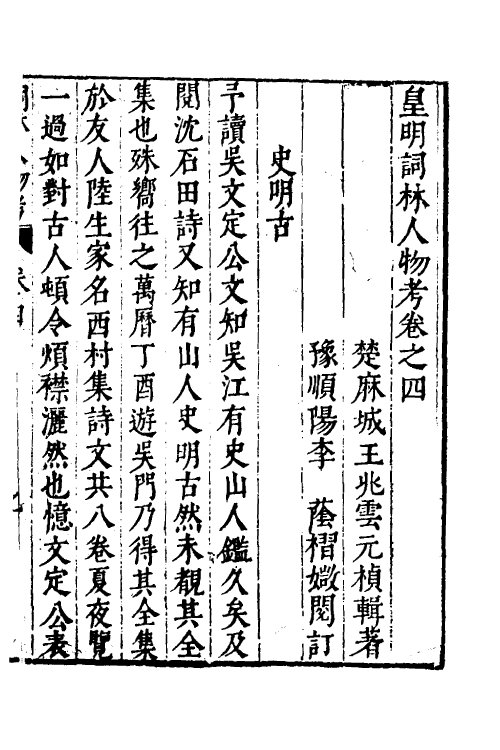 皇明詞林人物考卷之四
楚麻城王兆雲元楨輯著
豫順陽李 蔭褶嫐閱訂
史明古
予讀吳文定公文知吳江有史山人鑑久矣及
閱沈石田詩又知有山人史明古然未覩其全
集也殊嚮往之萬曆丁酉遊吳門乃得其全集
於友人陸生家名西村集詩文共八卷夏夜覽
一過如對古人頓令煩襟灑然也憶文定公表
詞林人物考 卷四